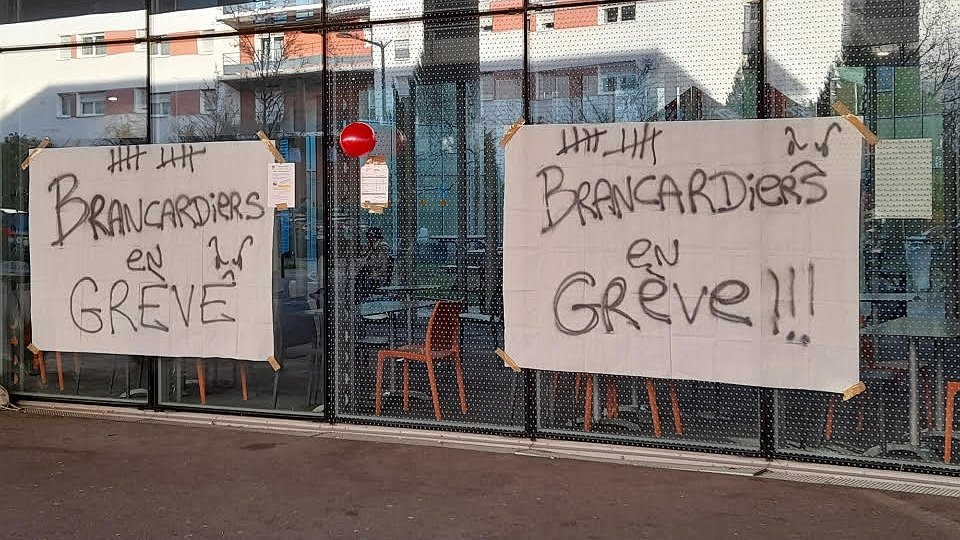 BRANCARDiERS
en
GRÈVE
BRANCARDiERS
en
GRève !!!